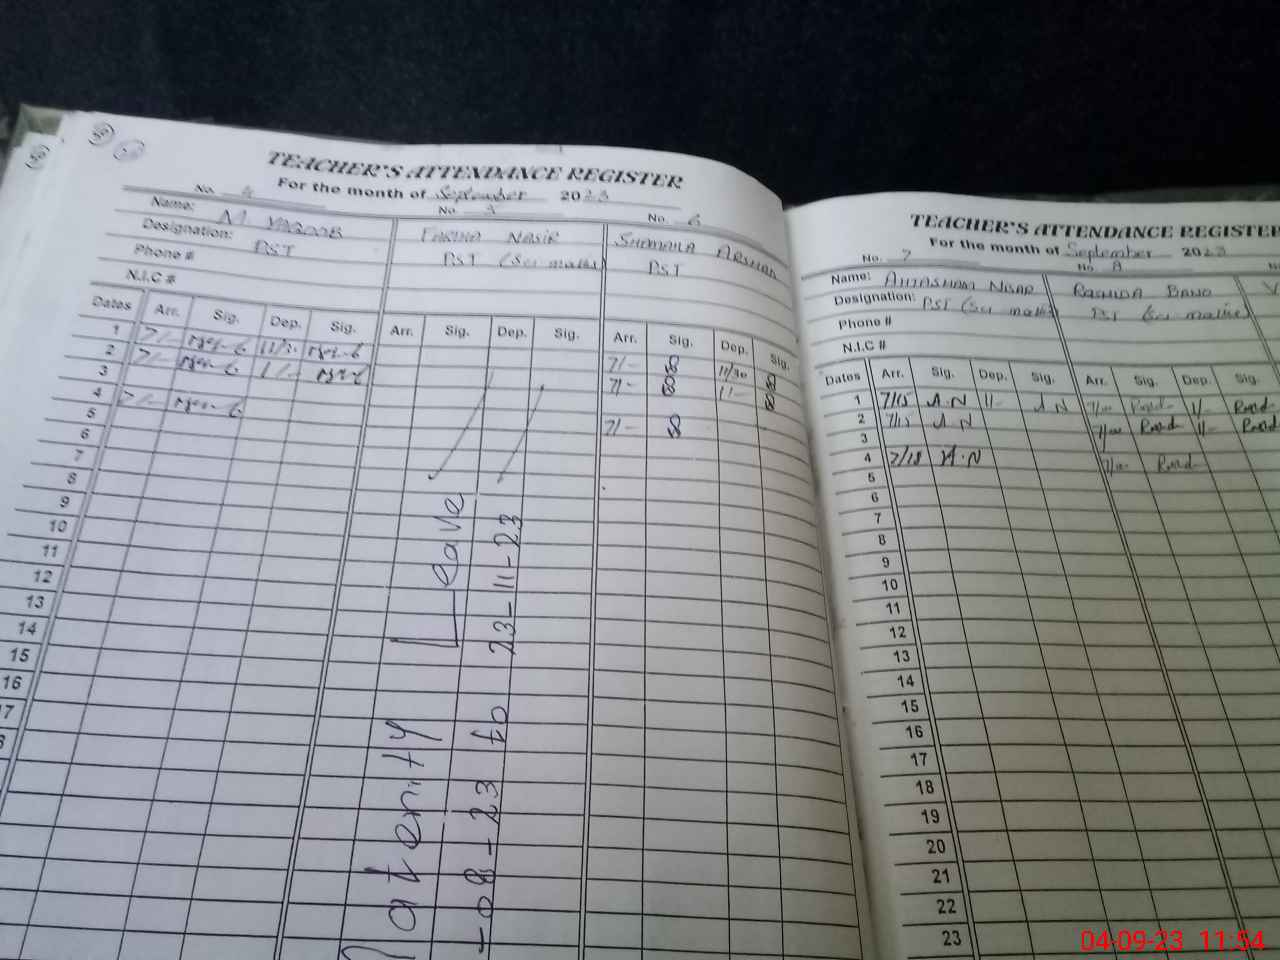 TEACHER'S ATTENDANCE REGISTER
For the month of September 2023
No. 4 No. 5 No. 6
Name: M YAQOOB FARIHA NASIR SHUMAILA ARSHAD
Designation: PST PST (Sci maths) PST
Phone #
N.I.C #
Dates Arr. Sig. Dep. Sig. Arr. Sig. Dep. Sig. Arr. Sig. Dep. Sig.
1 7/- 11/30 7/- 11/30
2 7/- 11/- 7/- 11/-
3
4 7/- 7/-
5
6
7
8
9
10
11
12
13
14
15
16
Maternity Leave
-08-23 to 23-11-23
TEACHER'S ATTENDANCE REGISTER
For the month of September 2023
No. 7 No. 8 No
Name: AHTASHAM NISAR RASHIDA BANO
Designation: PST (Sci maths) PST (Sci maths)
Phone #
N.I.C #
Dates Arr. Sig. Dep. Sig. Arr. Sig. Dep. Sig.
1 7/15 A.N 11- A.N 7/00 11-
2 7/15 A.N 7/00 11-
3
4 7/18 A.N 7/00
5
6
7
8
9
10
11
12
13
14
15
16
17
18
19
20
21
22
23
04-09-23 11:54